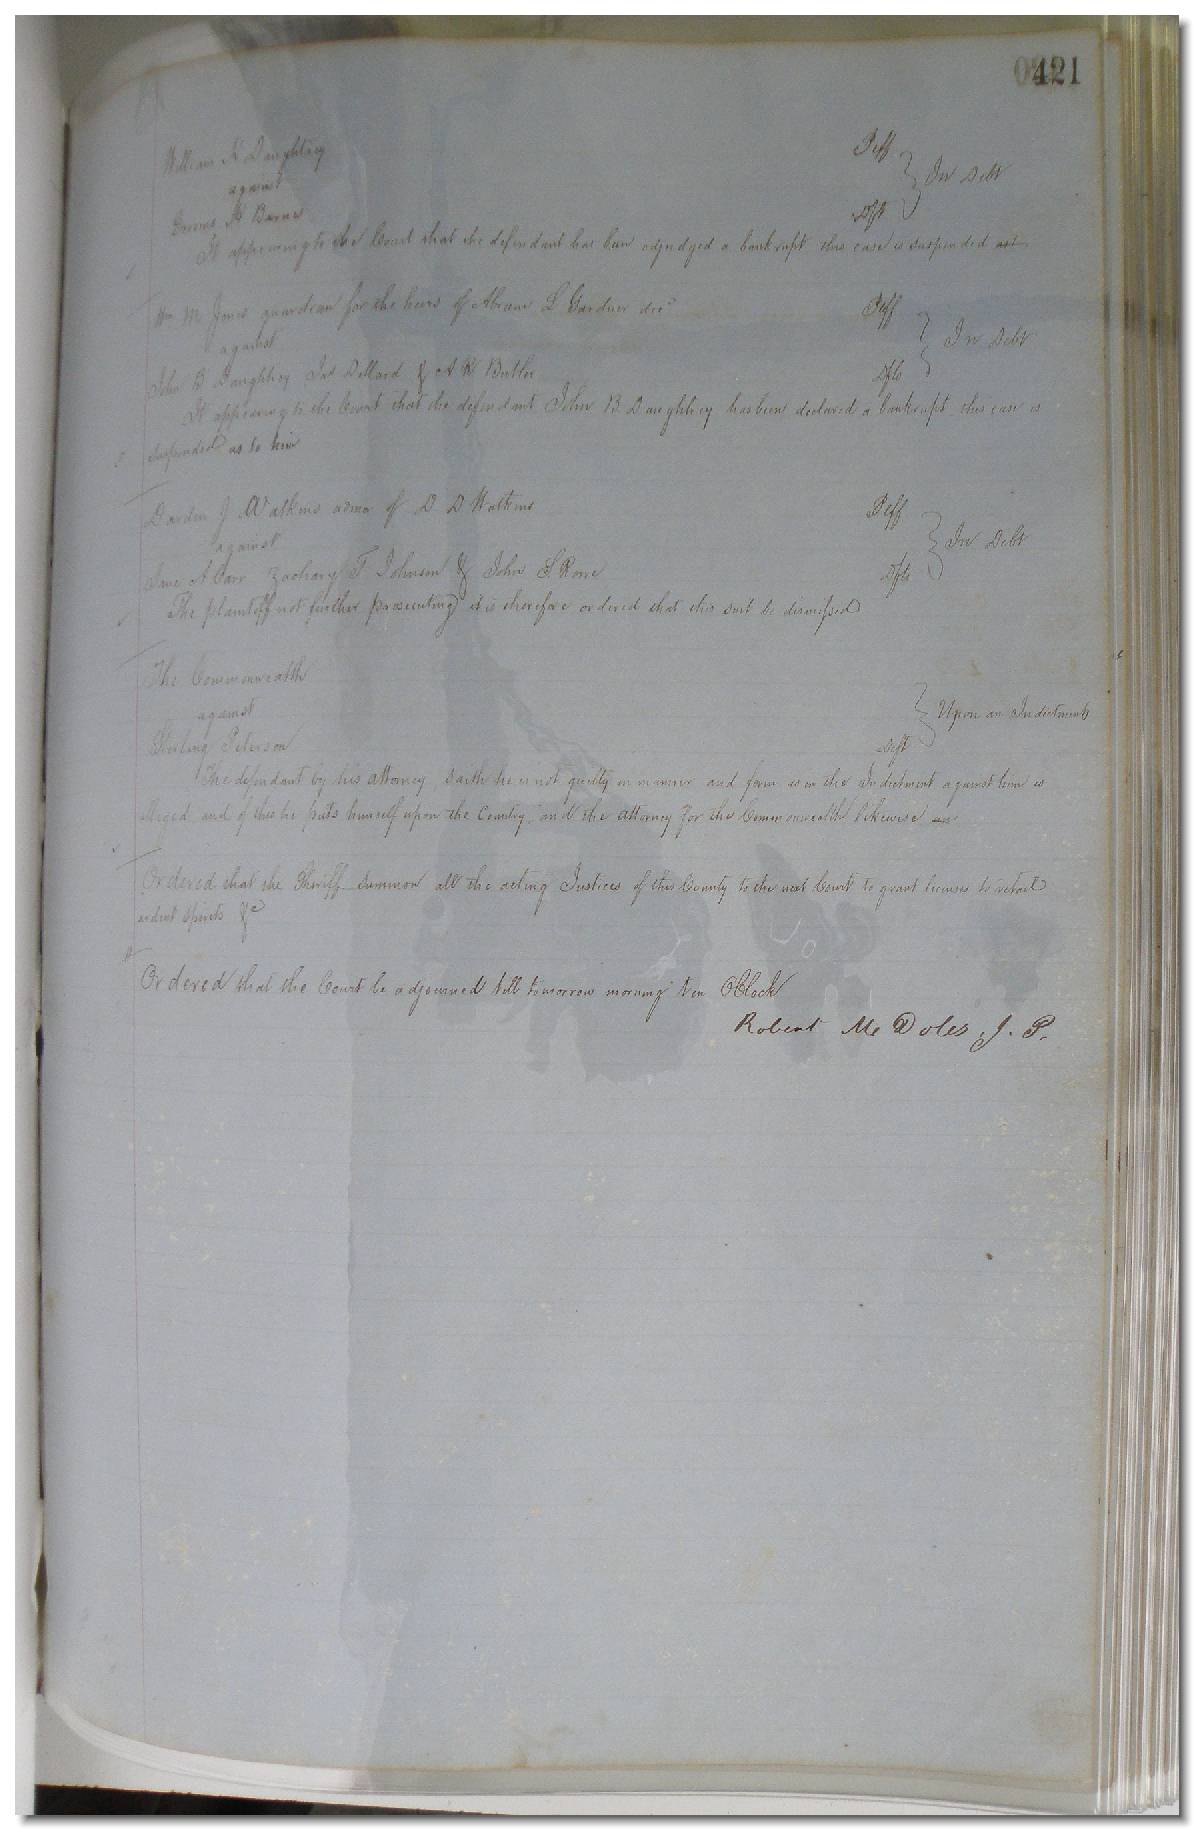 421
William H Daughtrey Plff
against In Debt
H Barnes Dft
It appearing to the Court that the defendant has been adjudged a bankrupt this case is suspended
Wm M Jones guardian for the heirs of Abram L Gardner decd Plff
against In Debt
John B Daughtrey Jas Dillard & A R Butler Dfts
It appearing to the Court that the defendant John B Daughtrey has been declared a bankrupt this case is
suspended as to him
Darden J Watkins admr of D D Watkins Plff
against In Debt
A Carr Zachary T Johnson & John S Rowe Dfts
The plaintiff not further prosecuting it is therefore ordered that this suit be dismissed
The Commonwealth
against Upon an Indictment
Sterling Peterson Deft
The defendant by his attorney saith he is not guilty in manner and form as in the Indictment against him is
alleged and of this he puts himself upon the Country and the attorney for the Commonwealth likewise
Ordered that the Sheriff summon all the acting Justices of this County to the next Court to grant licenses to retail
ardent spirits &c
Ordered that the Court be adjourned till tomorrow morning ten OClock
Robert Mc Doles J. P.